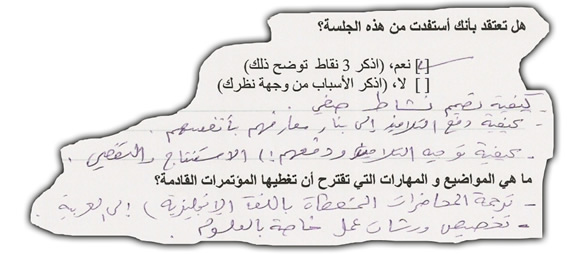 هل تعتقد بأنك أستفدت من هذه الجلسة؟
[✓] نعم، (اذكر 3 نقاط توضح ذلك)
[ ] لا، (اذكر الأسباب من وجهة نظرك)
- كيفية تصميم نشاط صفي.
- كيفية دفع التلاميذ إلى بناء معارفهم بأنفسهم.
- كيفية توجيه التلاميذ ودفعهم إلى الاستنتاج والتقصي.
ما هي المواضيع و المهارات التي تقترح أن تغطيها المؤتمرات القادمة؟
- ترجمة المحاضرات المعطاة باللغة الإنجليزية إلى العربية
- تخصيص ورشات عمل خاصة بالعلوم.